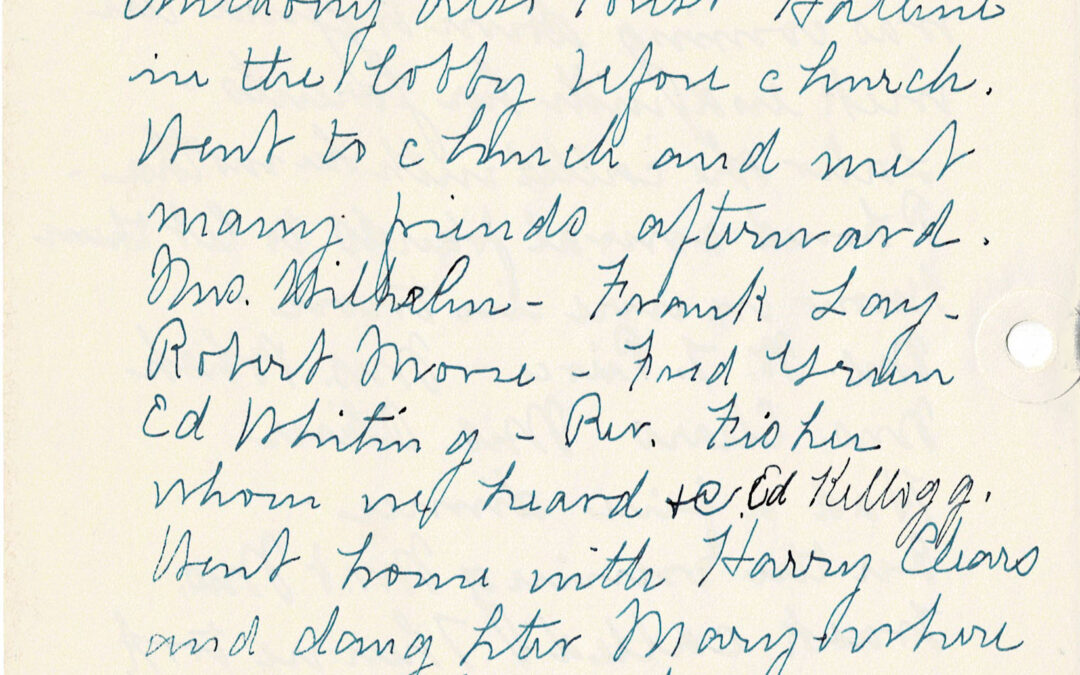 in the lobby before church.
Went to church and met
many friends afterward.
Mrs. Wilhelm - Frank Lay -
Robert Morse - Fred
Ed Whiting - Rev. Fisher
whom we heard + Ed Kellogg.
Went home with Harry Clears
and daughter Mary - where